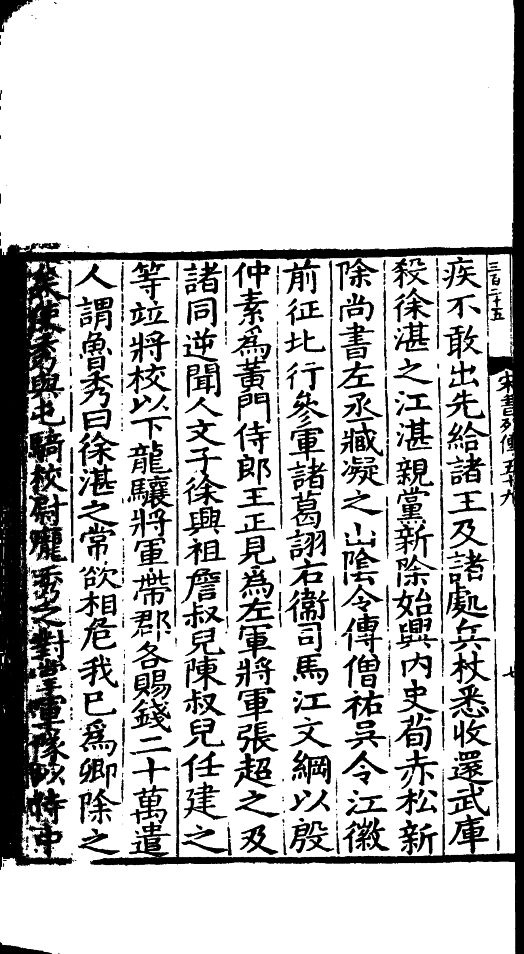 三百二十五
宋書列傳五十九
七
疾不敢出先給諸王及諸處兵杖悉收還武庫
殺徐湛之江湛親黨新除始興内史荀赤松新
除尚書左丞臧凝之山陰令傅僧祐吳令江徽
前征北行參軍諸葛詡右衞司馬江文綱以殷
仲素爲黄門侍郎王正見爲左軍將軍張超之及
諸同逆聞人文子徐興祖詹叔兒陳叔兒任建之
等竝將校以下龍驤將軍帶郡各賜錢二十萬遣
人謂魯秀曰徐湛之常欲相危我已爲卿除之
矣使秀與屯騎校尉龐秀之對掌軍隊以侍中